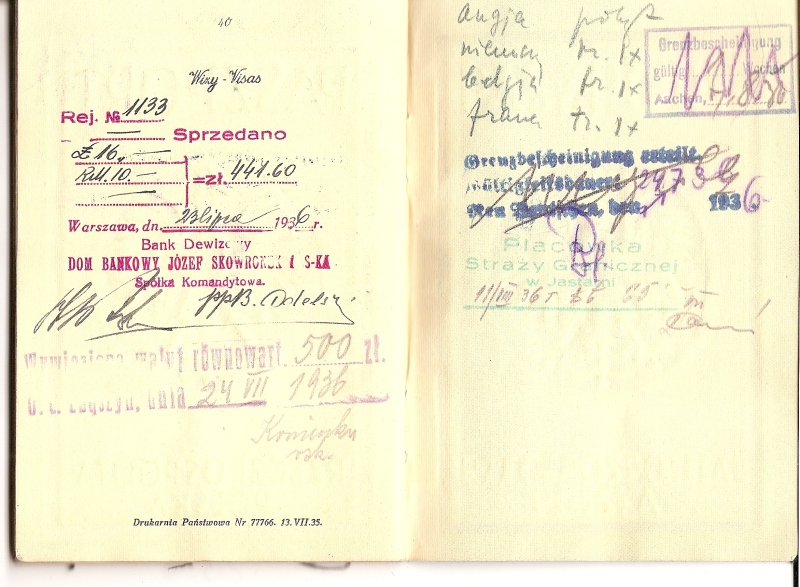 40
Wizy-Visas
Rej. № 1133
— Sprzedano
£ 16.—
RM. 10.— = zł. 441.60
—
Warszawa, dn. 23 lipca 1936 r.
Bank Dewizowy
DOM BANKOWY JÓZEF SKOWRONEK I S-KA
Spółka Komandytowa.
ppB.
Wywieziono walut równowart. 500 zł.
U. C. Zbąszyń, dnia 24 VII 1936
Drukarnia Państwowa Nr 77766. 13.VII.35.
angja
niemcy tr. 1x
belgja tr. 1x
franc tr. 1x
Grenzbescheinigung
gültig Wochen
Aachen,
Grenzbescheinigung erteilt
Gültigkeitsdauer:
Neu Bentschen, den 1936
Placówka
Straży Granicznej
w Jastarni
11/VIII 36 r